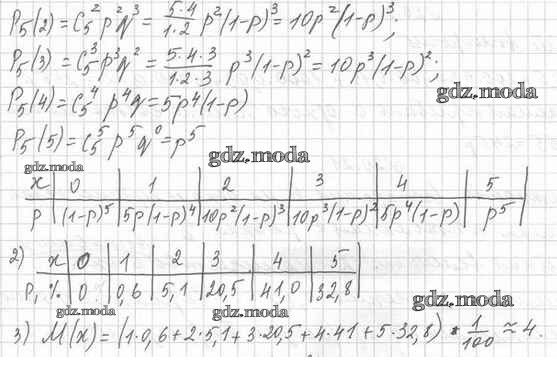 P₅(2) = C₅² p² q³ = 5·4/1·2 p²(1-p)³ = 10p²(1-p)³;
P₅(3) = C₅³ p³ q² = 5·4·3/1·2·3 p³(1-p)² = 10p³(1-p)²;
gdz.moda
P₅(4) = C₅⁴ p⁴ q = 5p⁴(1-p)
P₅(5) = C₅⁵ p⁵ q⁰ = p⁵
gdz.moda
gdz.moda
x | 0 | 1 | 2 | 3 | 4 | 5
p | (1-p)⁵ | 5p(1-p)⁴ | 10p²(1-p)³ | 10p³(1-p)² | 5p⁴(1-p) | p⁵
2) x | 0 | 1 | 2 | 3 | 4 | 5
P, % | 0 | 0,6 | 5,1 | 20,5 | 41,0 | 32,8
gdz.moda gdz.moda gdz.moda
3) M(x) = (1·0,6 + 2·5,1 + 3·20,5 + 4·41 + 5·32,8) · 1/100 ≈ 4.